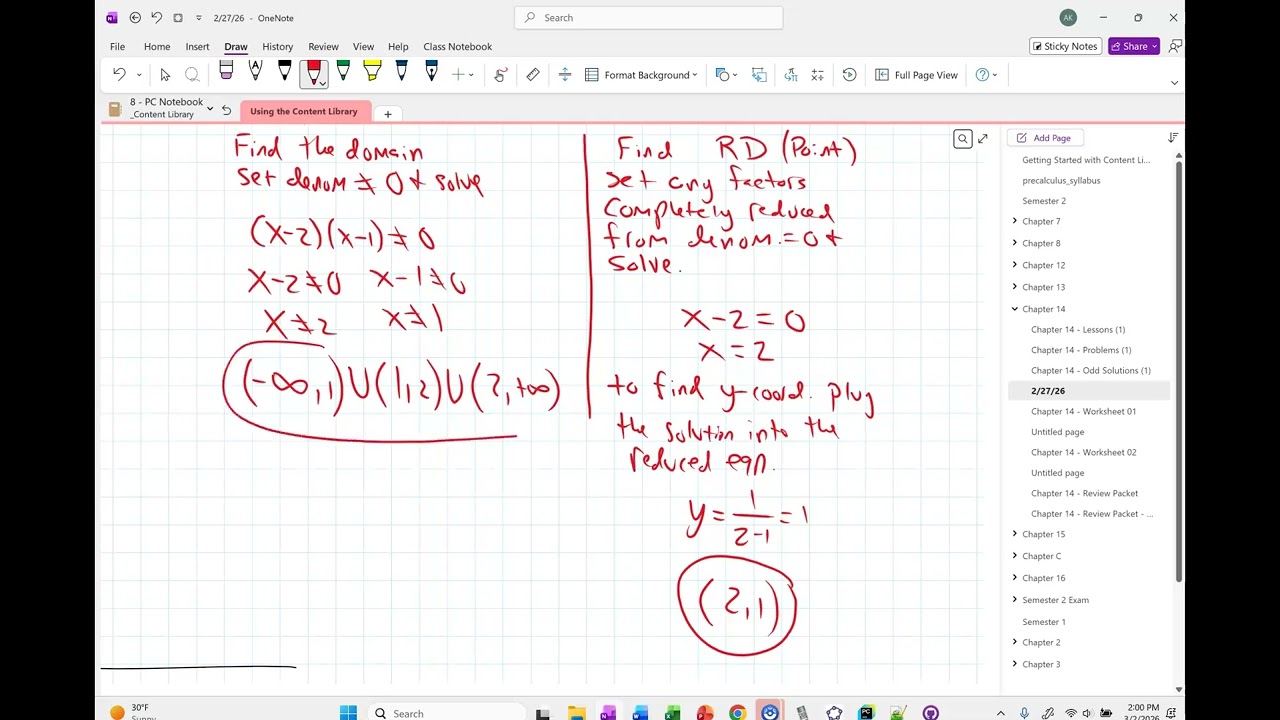 2/27/26 - OneNote
Search
AK
File Home Insert Draw History Review View Help Class Notebook
Sticky Notes
Share
Format Background
Full Page View
8 - PC Notebook
_Content Library
Using the Content Library
Find the domain
Set denom ≠ 0 & solve
(x-2)(x-1) ≠ 0
x-2≠0 x-1≠0
x≠2 x≠1
(-∞,1)U(1,2)U(2,+∞)
Find RD (Point)
Set any factors
Completely reduced
from denom. = 0 &
Solve.
x-2=0
x=2
to find y-coord. plug
the solution into the
reduced eqn.
y = 1/(2-1) = 1
(2,1)
Add Page
Getting Started with Content Li...
precalculus_syllabus
Semester 2
Chapter 7
Chapter 8
Chapter 12
Chapter 13
Chapter 14
Chapter 14 - Lessons (1)
Chapter 14 - Problems (1)
Chapter 14 - Odd Solutions (1)
2/27/26
Chapter 14 - Worksheet 01
Untitled page
Chapter 14 - Worksheet 02
Untitled page
Chapter 14 - Review Packet
Chapter 14 - Review Packet - ...
Chapter 15
Chapter C
Chapter 16
Semester 2 Exam
Semester 1
Chapter 2
Chapter 3
30°F
Sunny
Search
2:00 PM
3/2/2026